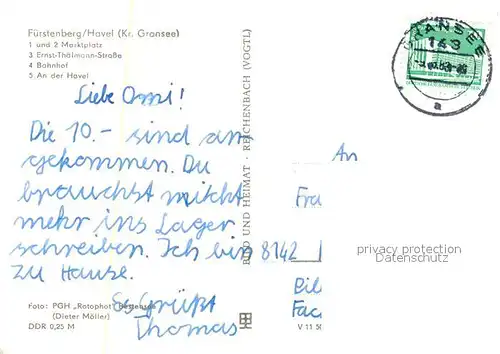 Fürstenberg/Havel (Kr. Gransee)
1 und 2 Marktplatz
3 Ernst-Thälmann-Straße
4 Bahnhof
5 An der Havel
GRANSEE
143
a
Liebe Omi!
Die 10.- sind an
gekommen. Du
brauchst nicht
mehr ins Lager
schreiben. Ich bin
zu Hause.
Es grüßt
Thomas
BILD UND HEIMAT · REICHENBACH (VOGTL)
An
Fra
8142
privacy protection
Datenschutz
Foto: PGH „Rotophot“ Bestensee
(Dieter Möller)
DDR 0,25 M
V 11 50